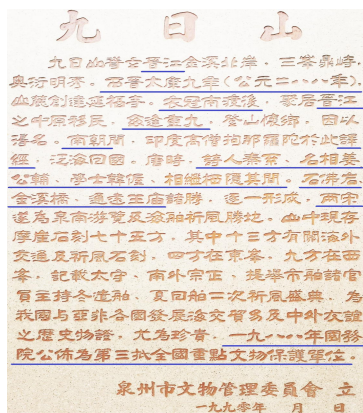 九日山
九日山聳立晋江金溪北岸，三峯鼎峙，
奥衍明秀。西晋太康九年（公元二八八年）
山麓創建延福寺。衣冠南渡後，聚居晋江
之中原移民，每逢重九，登山懷鄉，因以
得名。南朝間，印度高僧拘那羅陀於此譯
經，泛海回國。唐時，詩人秦系、名相姜
公輔、學士韓偓，相繼栖隱其間。石佛岩、
金溪橋、通遠王廟諸勝，逐一形成，兩宋
遂爲泉南游覽及海舶祈風勝地。山中現存
摩崖石刻七十五方，其中十三方有關海外
交通及祈風石刻，四方在東峯，九方在西
峯，記載太守、南外宗正、提舉市舶諸官
員主持冬遣舶、夏回舶二次祈風盛典，爲
我國與亞非各國發展海交貿易及中外友誼
之歷史物證，尤爲珍貴。一九八八年國務
院公佈爲第三批全國重點文物保護單位。
泉州市文物管理委員會 立
一九九零年 月 日